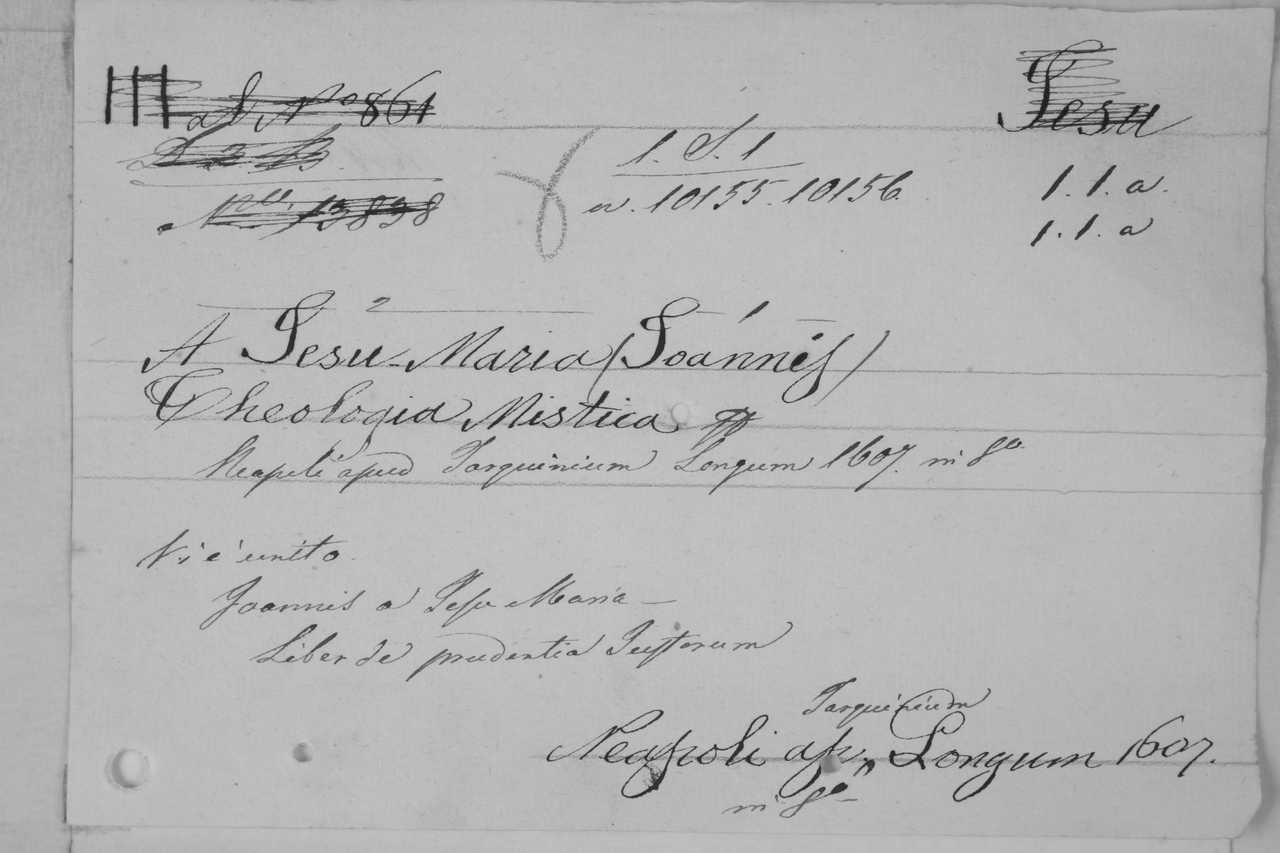 Sal. N.º 861
Jesu
N.º 13838
1. S. 1
n. 10155. 10156.
1. 1. a.
1. 1. a
2 1
A Jesu-Maria (Joánnes)
Theologia Mistica
Neapoli apud Tarquinium Longum 1607. in 8º
Vi è unito
Joannis a Jesu Maria
Liber de prudentia Justorum
Tarquinium
Neapoli ap. Longum 1607.
in 8º